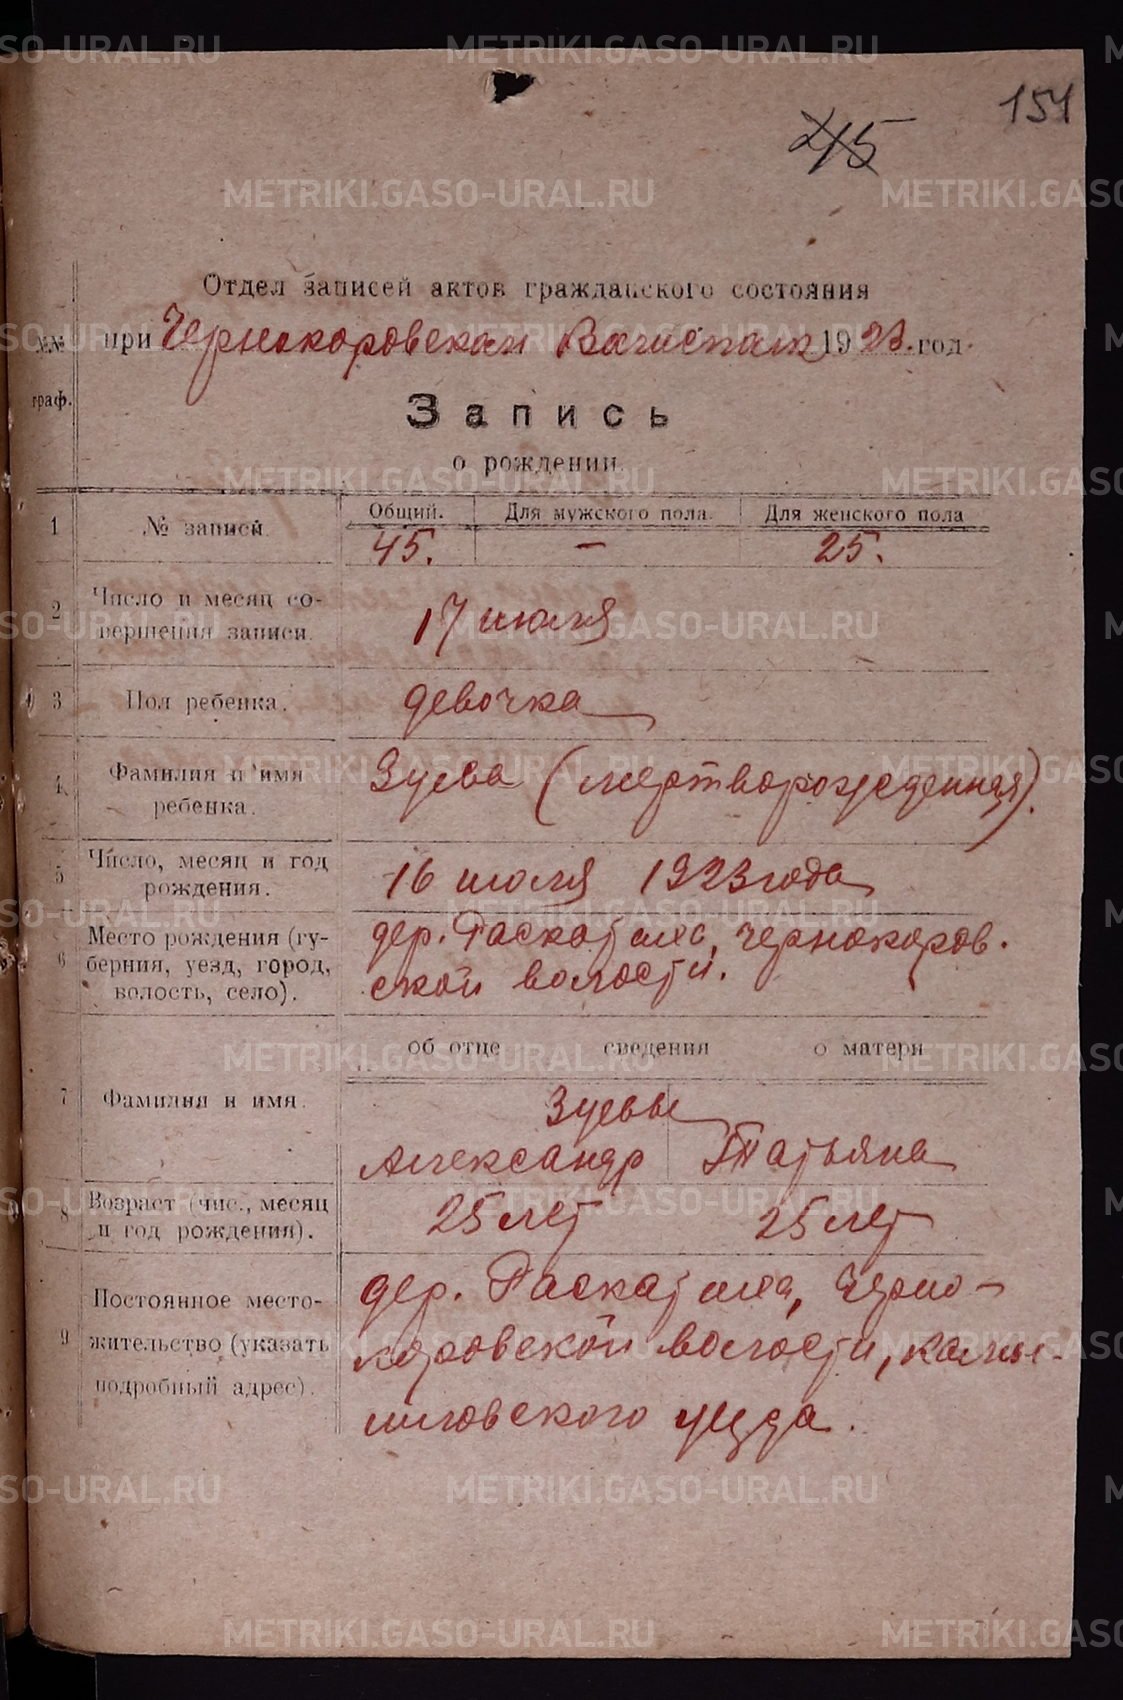 154
215
Отдел записей актов гражданского состояния
при Чернокоровском Волисполк 1923. год.
№№ граф.
Запись
о рождении.
1 № записи. Общий. Для мужского пола. Для женского пола
45. — 25.
2 Число и месяц со-
вершения записи. 17 июля
3 Пол ребенка. девочка
4 Фамилия и имя
ребенка. Зуева (мертворожденная).
5 Число, месяц и год
рождения. 16 июля 1923 года
6 Место рождения (гу-
берния, уезд, город,
волость, село). дер. Раскатиха, Чернокоров-
ской волости.
об отце сведения о матери
7 Фамилия и имя. Зуевы
Александр Татьяна
8 Возраст (чис., месяц
и год рождения). 25 лет 25 лет
9 Постоянное место-
жительство (указать
подробный адрес). дер. Раскатиха, Черно-
коровской волости, камы-
шловского уезда.
METRIKI.GASO-URAL.RU